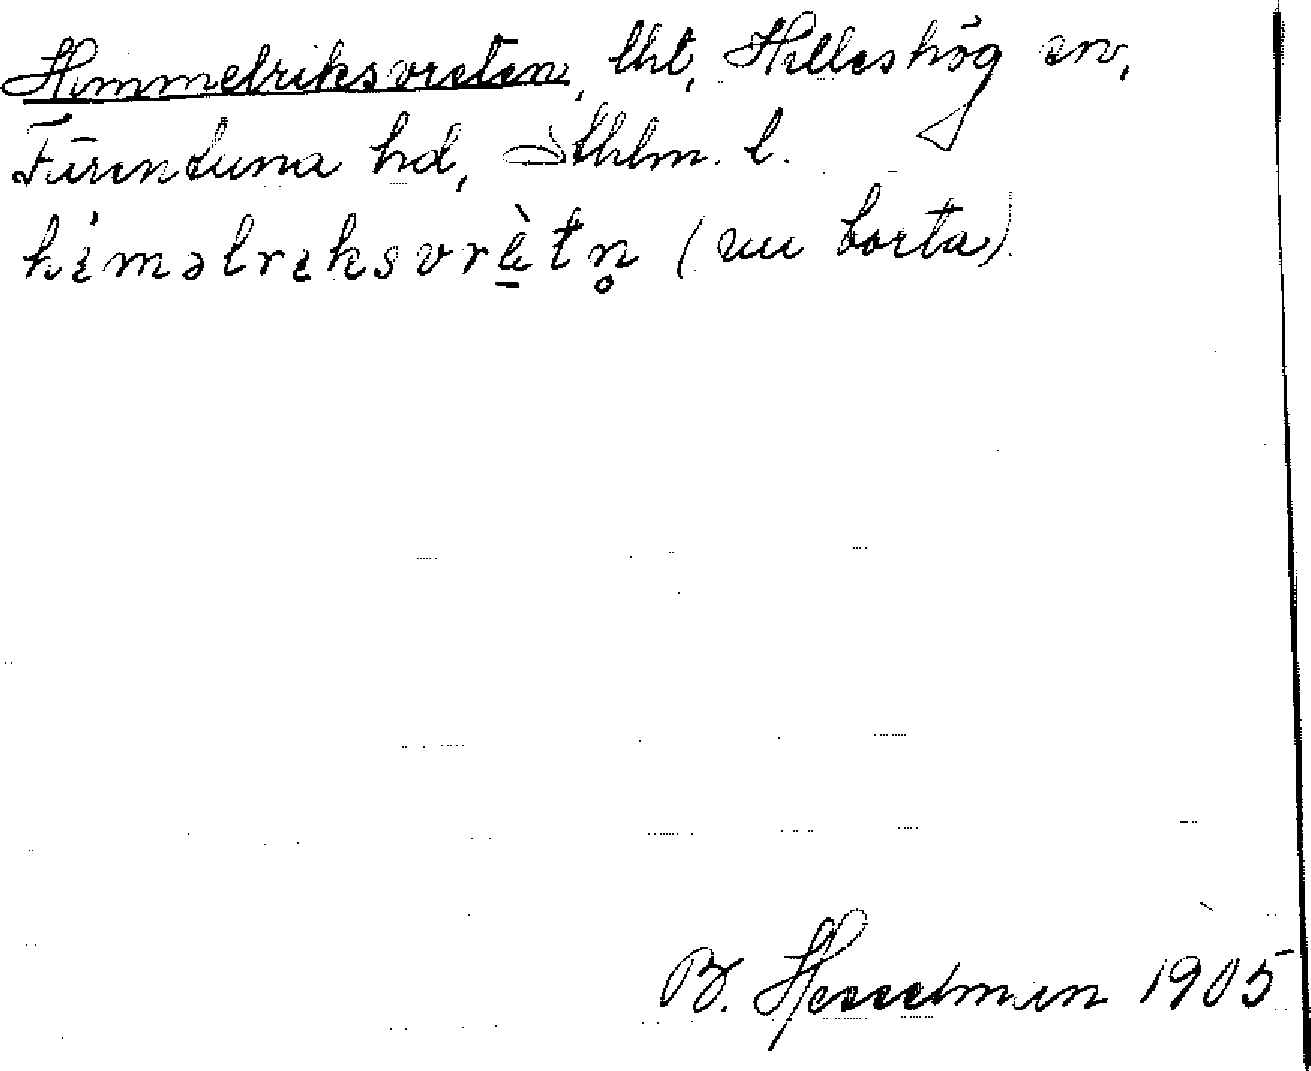 Himmelriksvreten, lht, Hilleshög sn,
Färentuna hd, Sthlm. l.
hìməlrɩksvrὲ̠tn̥ (nu borta)
B. Hesselman 1905